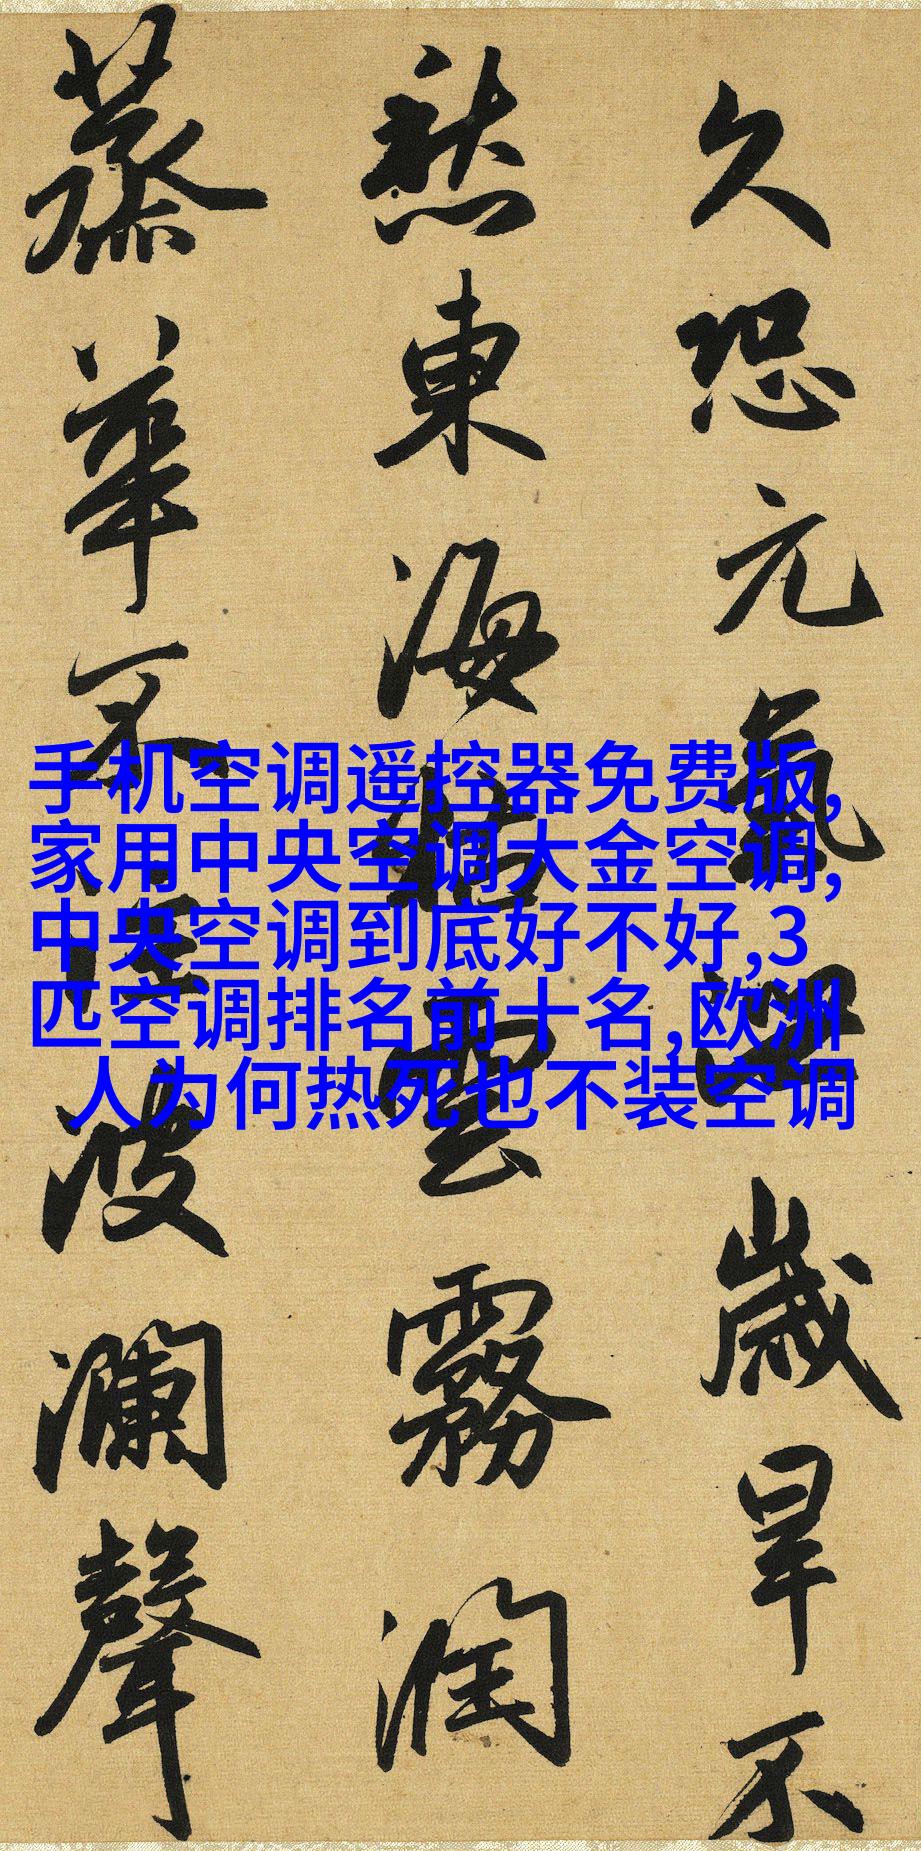 手机空调遥控器免费版,
家用中央空调大金空调,
中央空调到底好不好,3
匹空调排名前十名,欧洲
人为何热死也不装空调
久恐元氣泄歲旱不
愁東海枯雲霧潤
蒸華不注波瀾聲